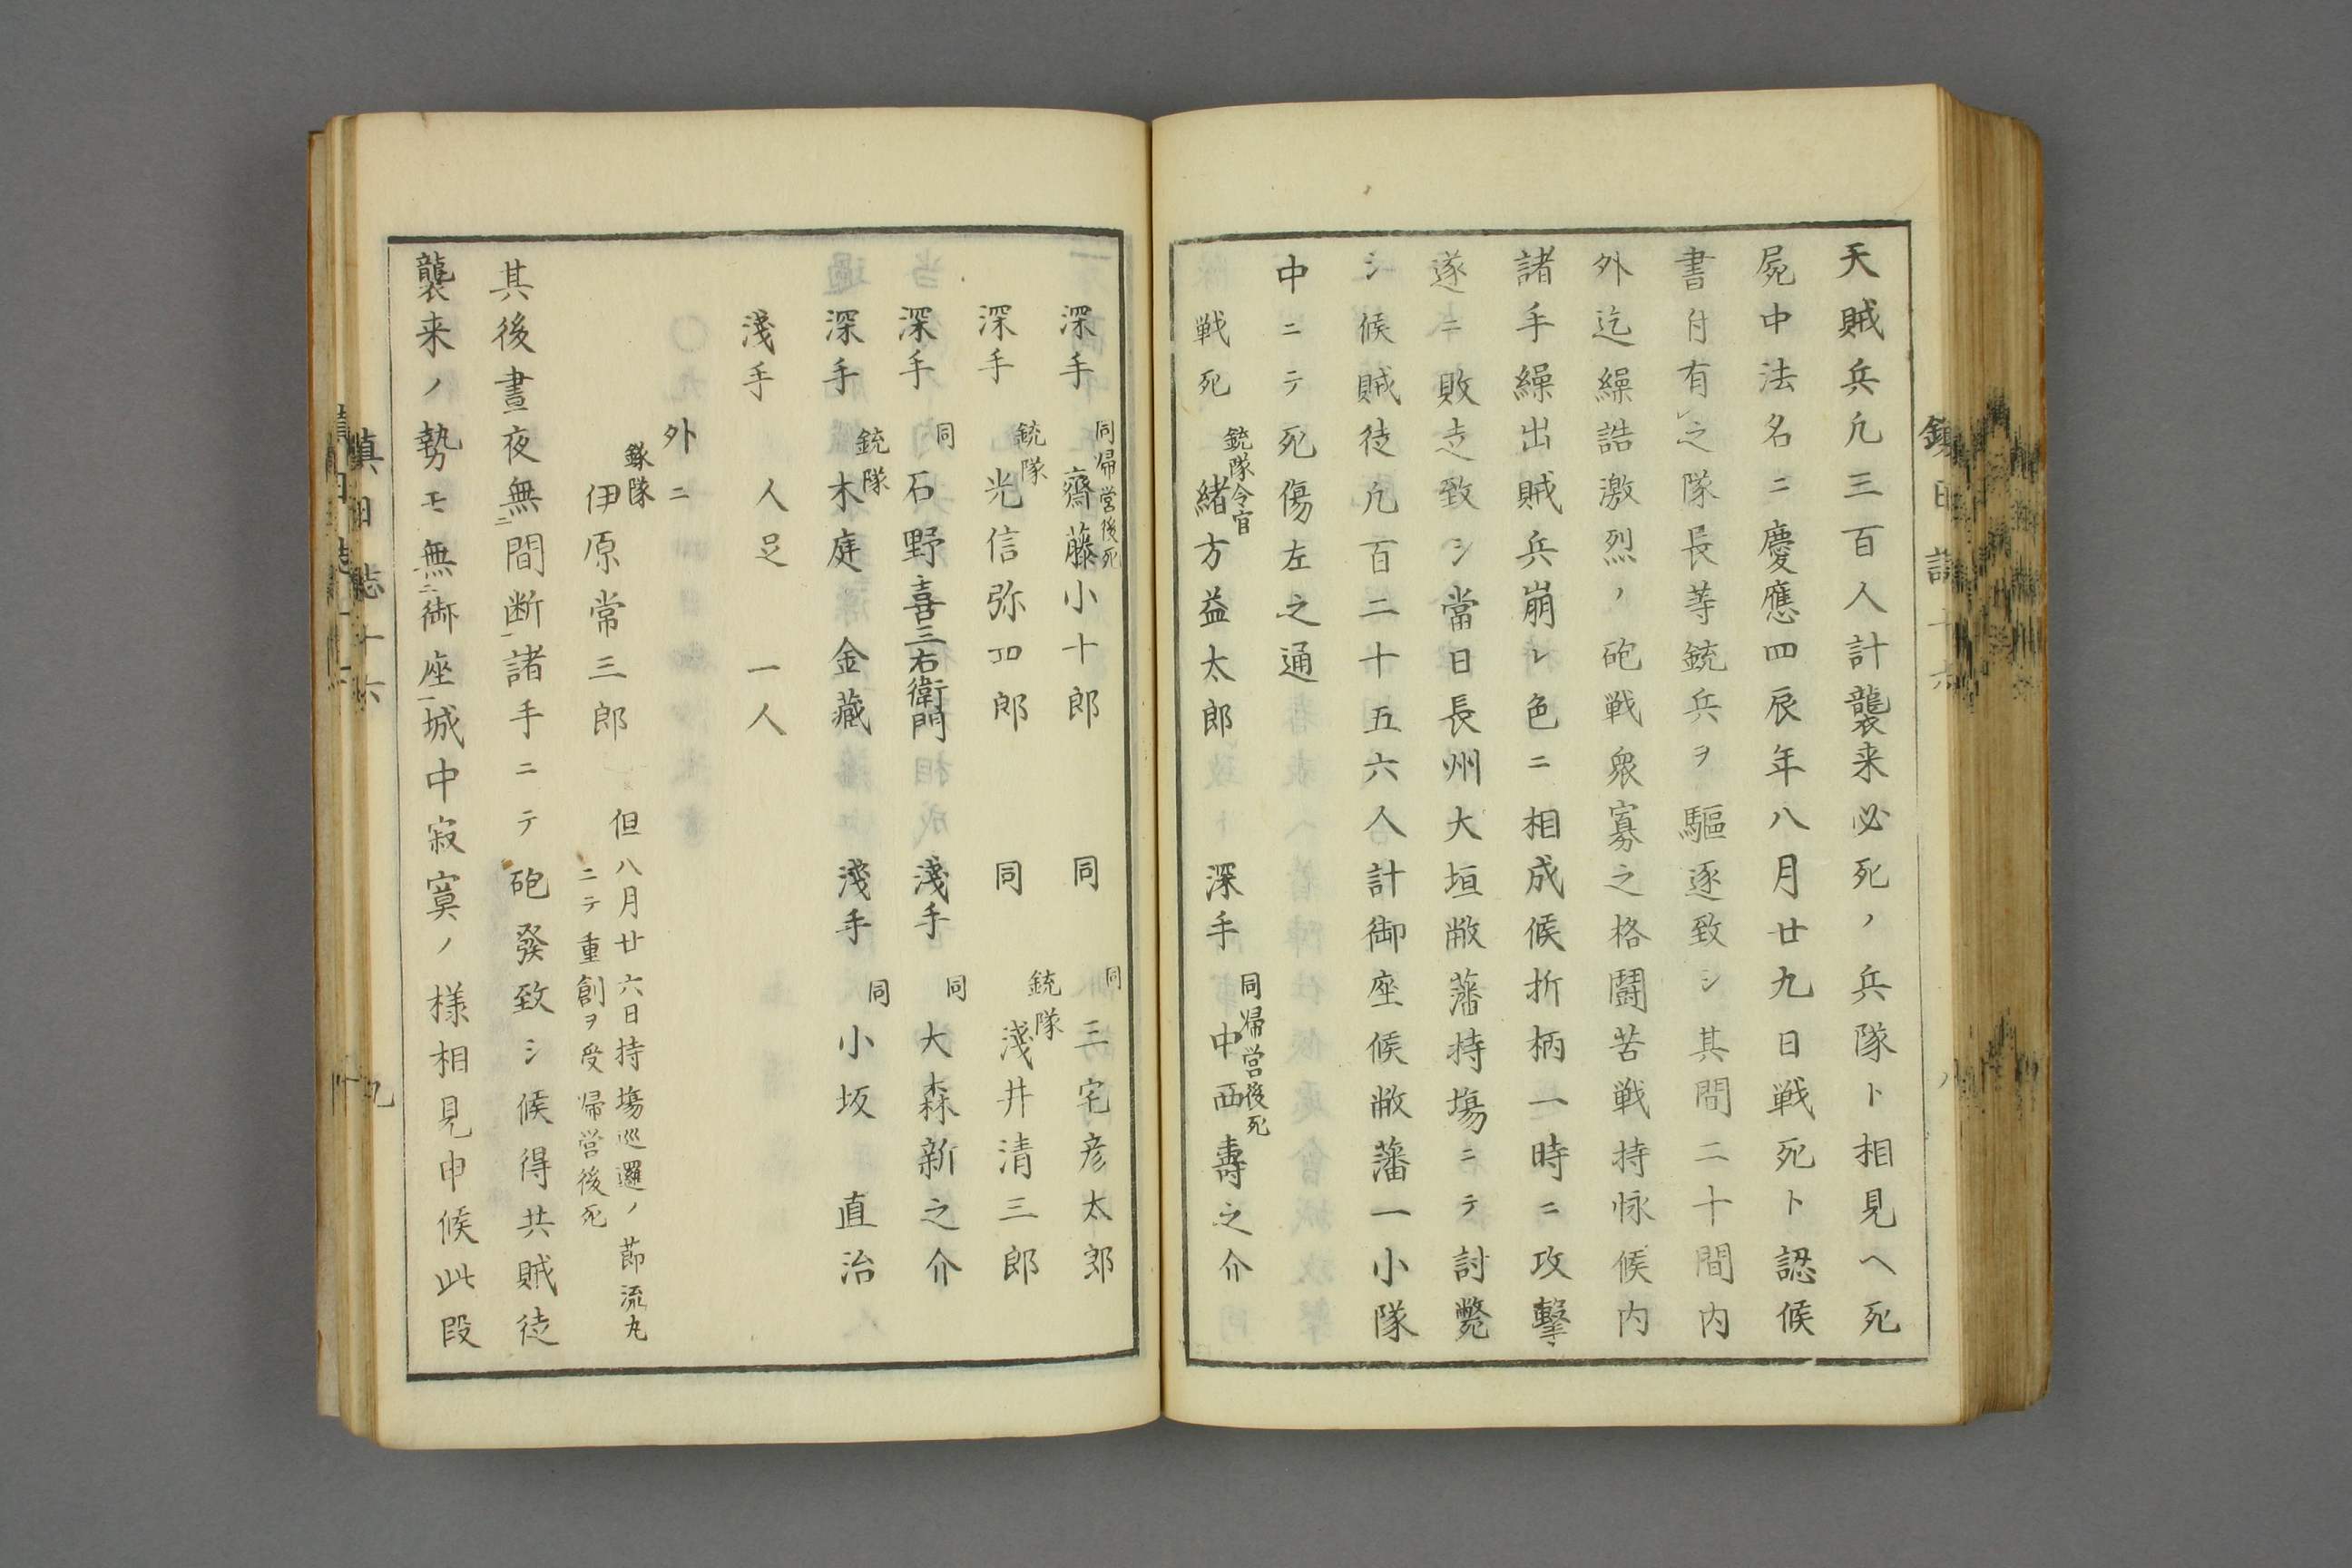 天賊兵凢三百人計襲来必死ノ兵隊ト相見ヘ死
屍中法名ニ慶應四辰年八月廿九日戦死ト認候
書付有レ之隊長等銃兵ヲ驅逐致シ其間二十間内
外迄繰詰激烈ノ砲戦衆寡之格闘苦戦持怺候内
諸手繰出賊兵崩レ色ニ相成候折柄一時ニ攻撃
遂ニ敗走致シ當日長州大垣敝藩持塲ニテ討斃
シ候賊徒凢百二十五六人計御座候敝藩一小隊
中ニテ死傷左之通
戦死 銃隊令官 緒方益太郎 深手 同帰営後死 中西壽之介
鎮日誌十六
八
深手 同帰営後死 齋藤小十郎 同 同 三宅彦太郎
深手 銃隊 光信弥四郎 同 銃隊 淺井清三郎
深手 同 石野喜三右衛門 淺手 同 大森新之介
深手 銃隊 木庭金藏 淺手 同 小坂直治
淺手 人足 一人
外ニ
銃隊 伊原常三郎 但八月廿六日持塲巡邏ノ節流丸
ニテ重創ヲ受帰営後死
其後晝夜無二間断一諸手ニテ砲發致シ候得共賊徒
襲来ノ勢モ無二御座一城中寂寞ノ様相見申候此段
鎮日誌十六
九